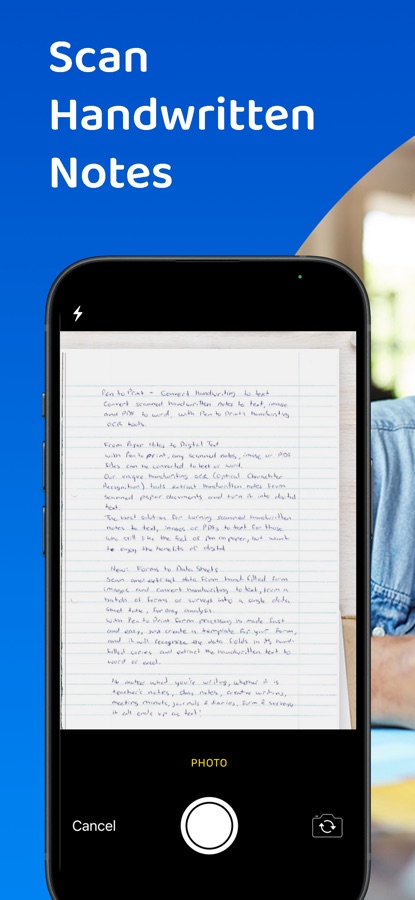 Scan
Handwritten
Notes
Pen to Print - Convert handwriting to text
Convert scanned handwritten notes to text, image
and PDF to word, with Pen to Print's handwriting
OCR tools.
From Paper Notes to Digital Text
with Pen to print, any scanned notes, image or PDF
files can be converted to text or word.
Our unique handwriting OCR (Optical Character
Recognition) tools extract handwritten notes from
scanned paper documents and turn it into digital
text.
The best solution for turning scanned handwritten
notes to text, images or PDFs to text for those
who still like the feel of pen on paper, but want
to enjoy the benefits of digital
New: Forms to Data Sheets
Scan and extract data from hand-filled form
images and convert handwriting to text, from a
batch of forms or surveys into a single data
sheet file, for easy analysis.
With Pen to Print form processing is made fast
and easy, just create a template for your form,
and it will recognize the data fields in the hand-
filled copies and extract the handwritten text to
word or excel.
No matter what you're writing, whether it is
notes, class notes, creative writing,
meeting minute, journals & diaries, form & surveys
it all ends up as text!
PHOTO
Cancel